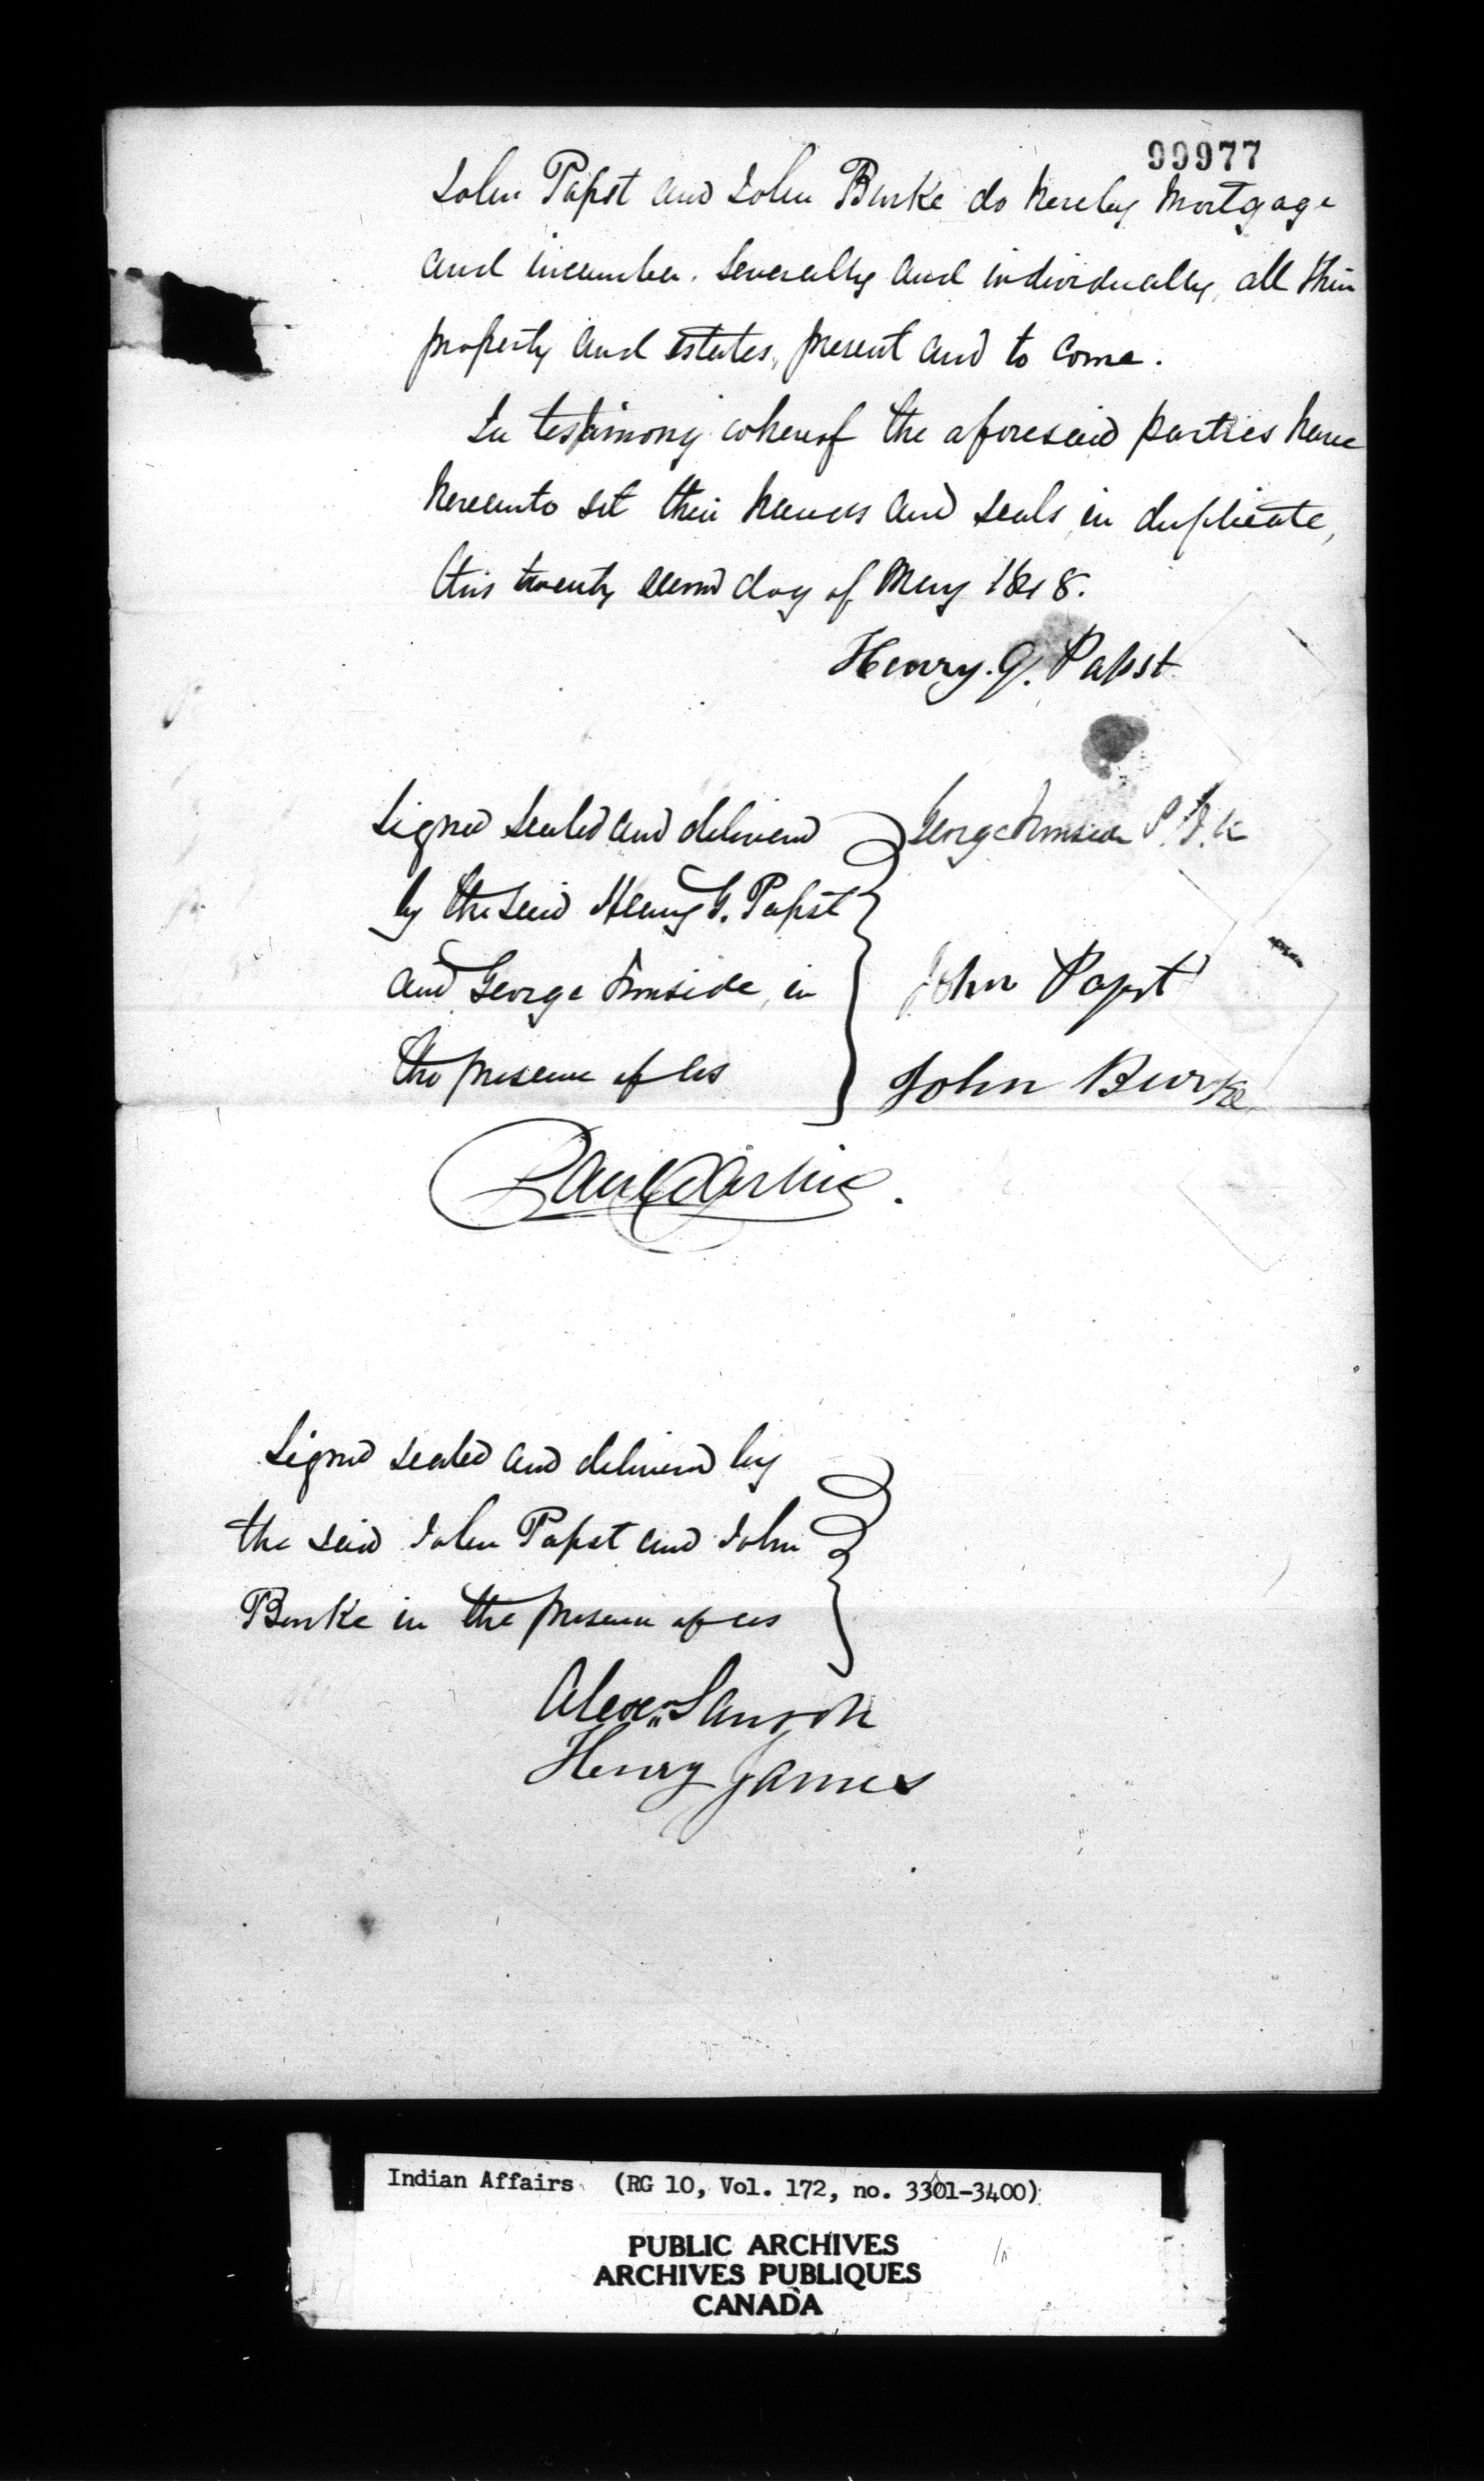 99977
John Papst and John Burke do hereby Mortgage
and incumber, severally and individually, all their
property and estates, present and to come.
In testimony whereof the aforesaid parties have
hereunto set their names and seals in duplicate,
this twenty second day of May 1848.
Henry. G. Papst
Signed sealed and delivered
George Ironside
by the said Henry G. Papst
and George Ironside, in
John Papst
the presence of us
John Burke
Paul Darling
Signed sealed and delivered by
the said John Papst and John
Burke in the presence of us
Henry James
Indian Affairs (RG 10, Vol. 172, no. 3301-3400)
PUBLIC ARCHIVES
ARCHIVES PUBLIQUES
CANADA